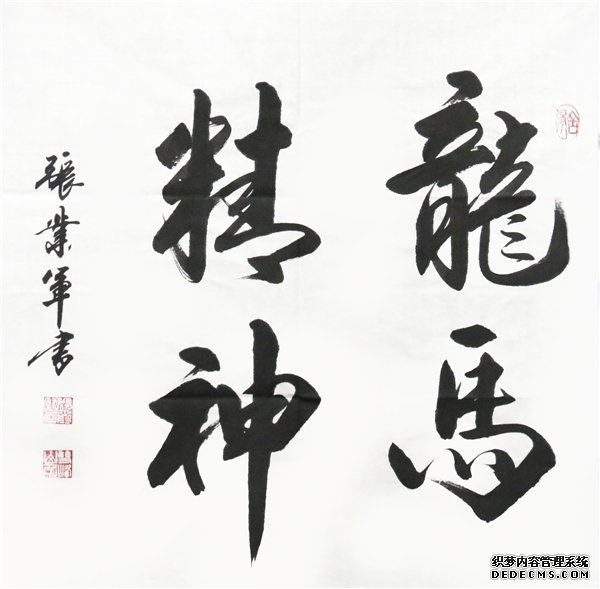 龍馬
精神
張業軍書
织梦内容管理系统
DEDECMS.COM